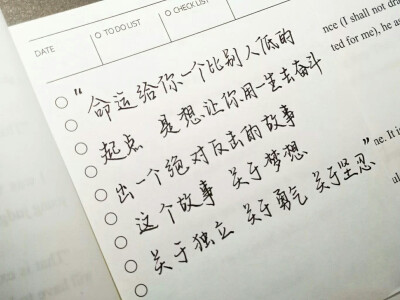 DATE
TO DO LIST
CHECK LIST
“命运给你一个比别人低的
起点 是想让你用一生去奋斗
出一个绝对反击的故事
这个故事 关于梦想
关于独立 关于勇气 关于坚忍”
nce (I shall not
ted for me), he as
ne. It is